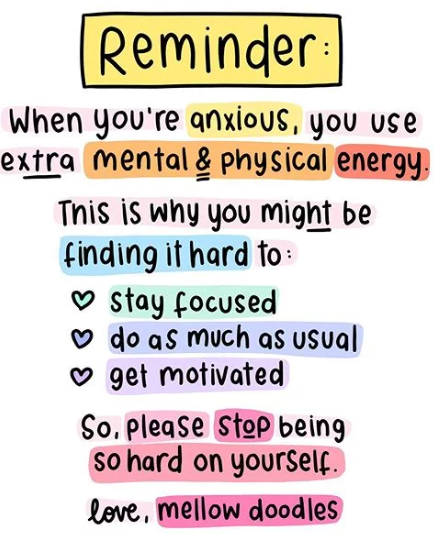 Reminder:
When you're anxious, you use
extra mental & physical energy.
This is why you might be
finding it hard to:
stay focused
do as much as usual
get motivated
So, please stop being
so hard on yourself.
love, mellow doodles